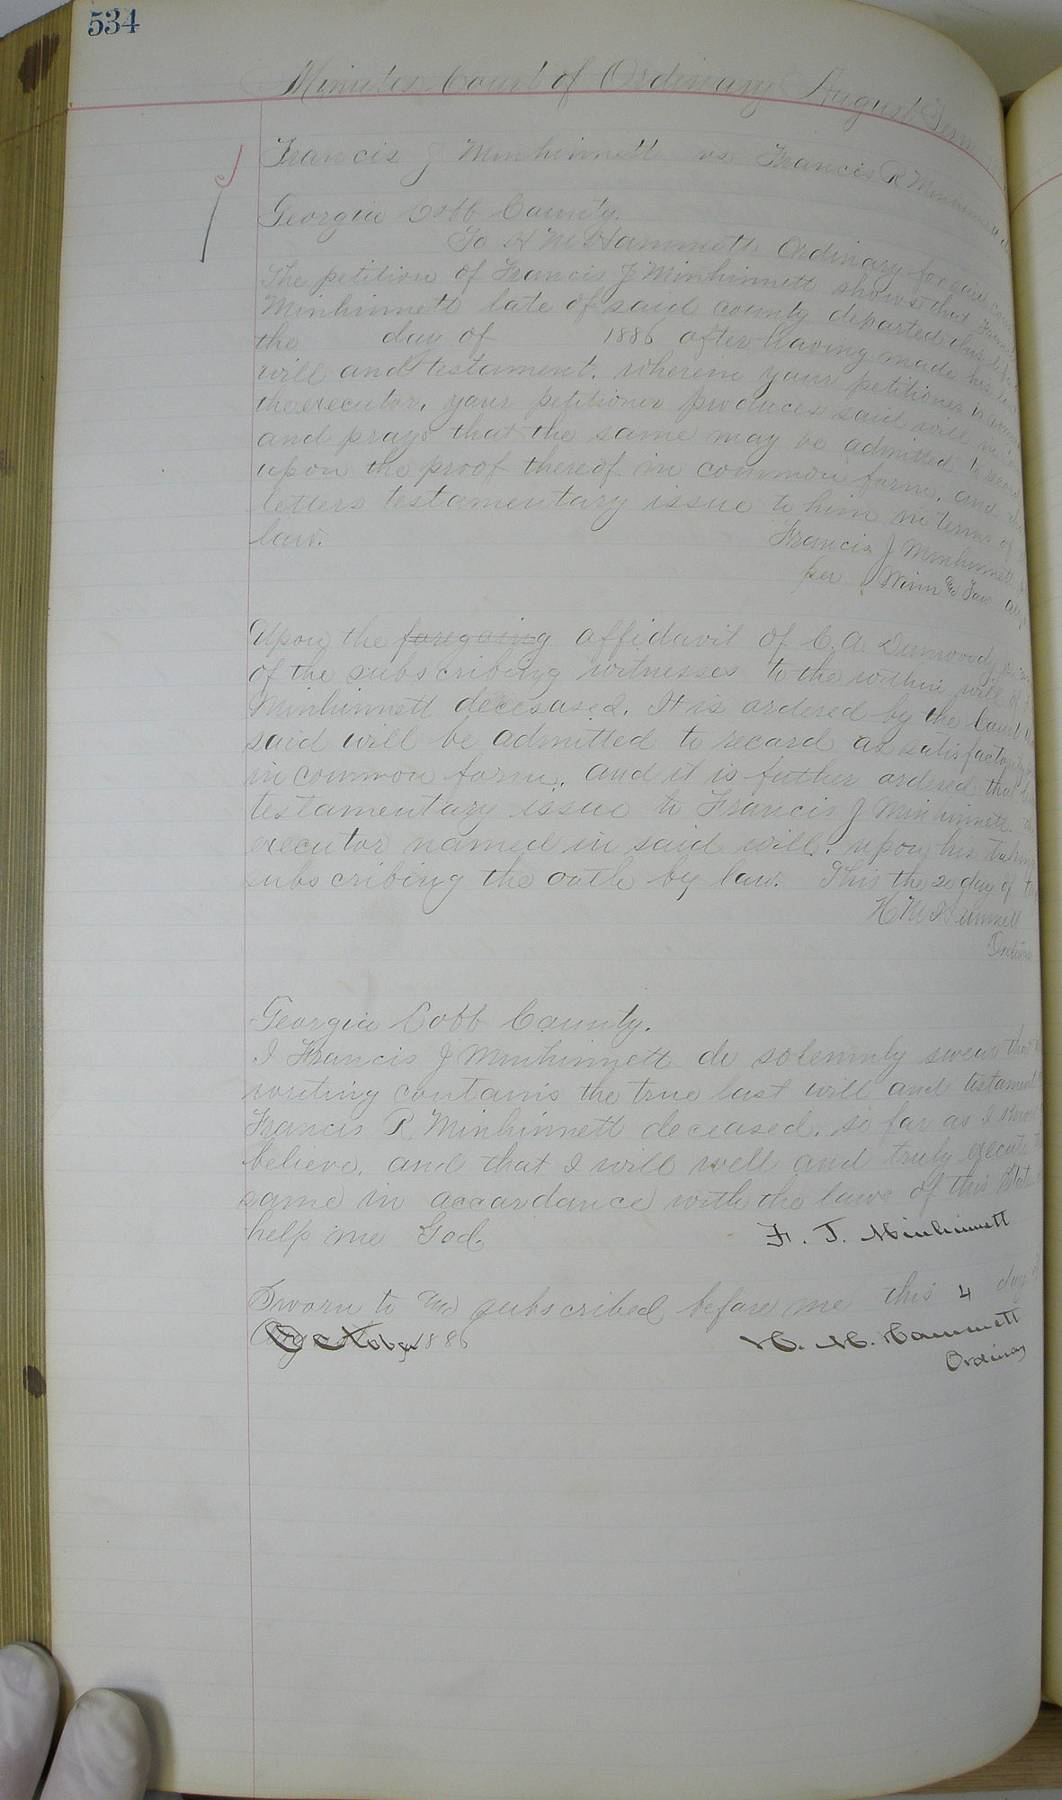 534
Minutes Court of Ordinary August Term
Francis J Minhinnett vs Francis R Minhinnett
Georgia Cobb County.
To H M Hammett Ordinary for said
The petition of Francis J Minhinnett shows that
Minhinnett late of said county departed this life
the day of 1886 after having made his last
will and testament. wherein your petitioner is
the executor. your petitioner produces said will in
and prays that the same may be admitted to
upon the proof thereof in common form. and
letters testamentary issue to him in terms of
law. Francis J Minhinnett
per Winn &
Upon the foregoing affidavit of C. A. Dunwoody
of the subscribing witnesses to the within will of
Minhinnett decesased. It is ordered by the Court
said will be admitted to record as satisfactorily
in common form. and it is futher ordered that
testamentary issue to Francis J Minhinnett
executor named in said will. upon his taking
subscribing the oath by law. This the 20 day of
H M Hammett
Georgia Cobb County.
I Francis J Minhinnett do solemnly swear that
writing contains the true last will and testament
Francis R Minhinnett deceased. so far as I know
believe. and that I will well and truly execute
same in accordance with the laws of this State
help me God. F. J. Minhinnett
Sworn to and subscribed before me this 4 day
October 1886 H. M. Hammett
Ordinary